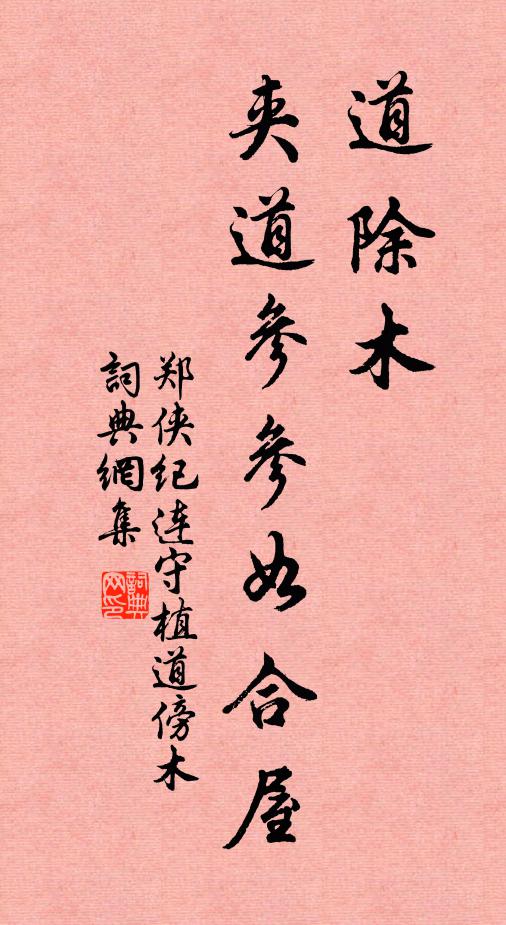 道除木
夾道參參如合屋
郑侠纪连守植道傍木
詞典網集
詞典网印